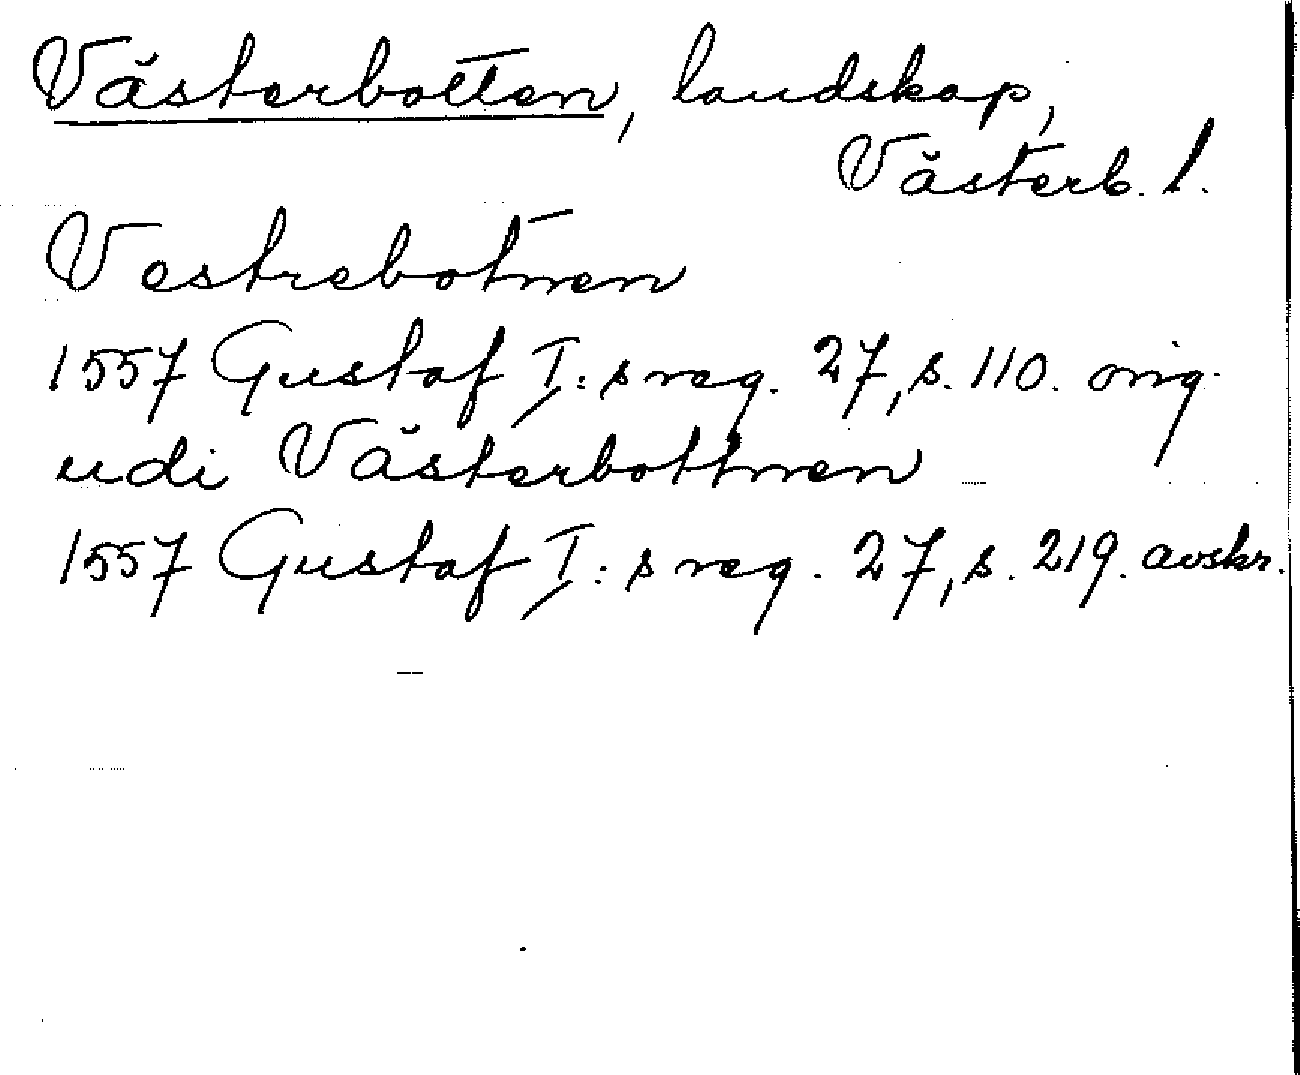 Västerbotten, landskap,
Västerb. l.
Vestrebotnen
1557 Gustaf I:s reg. 27, s. 110. orig.
udi Västerbottnen
1557 Gustaf I:s reg. 27, s. 219. avskr.